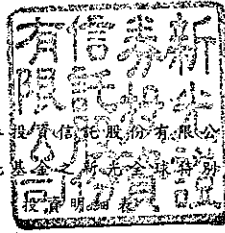 新光證
券投資
信託股份
有限公司
投資信託股份有限公
基金之新光全球特別
投資明細表